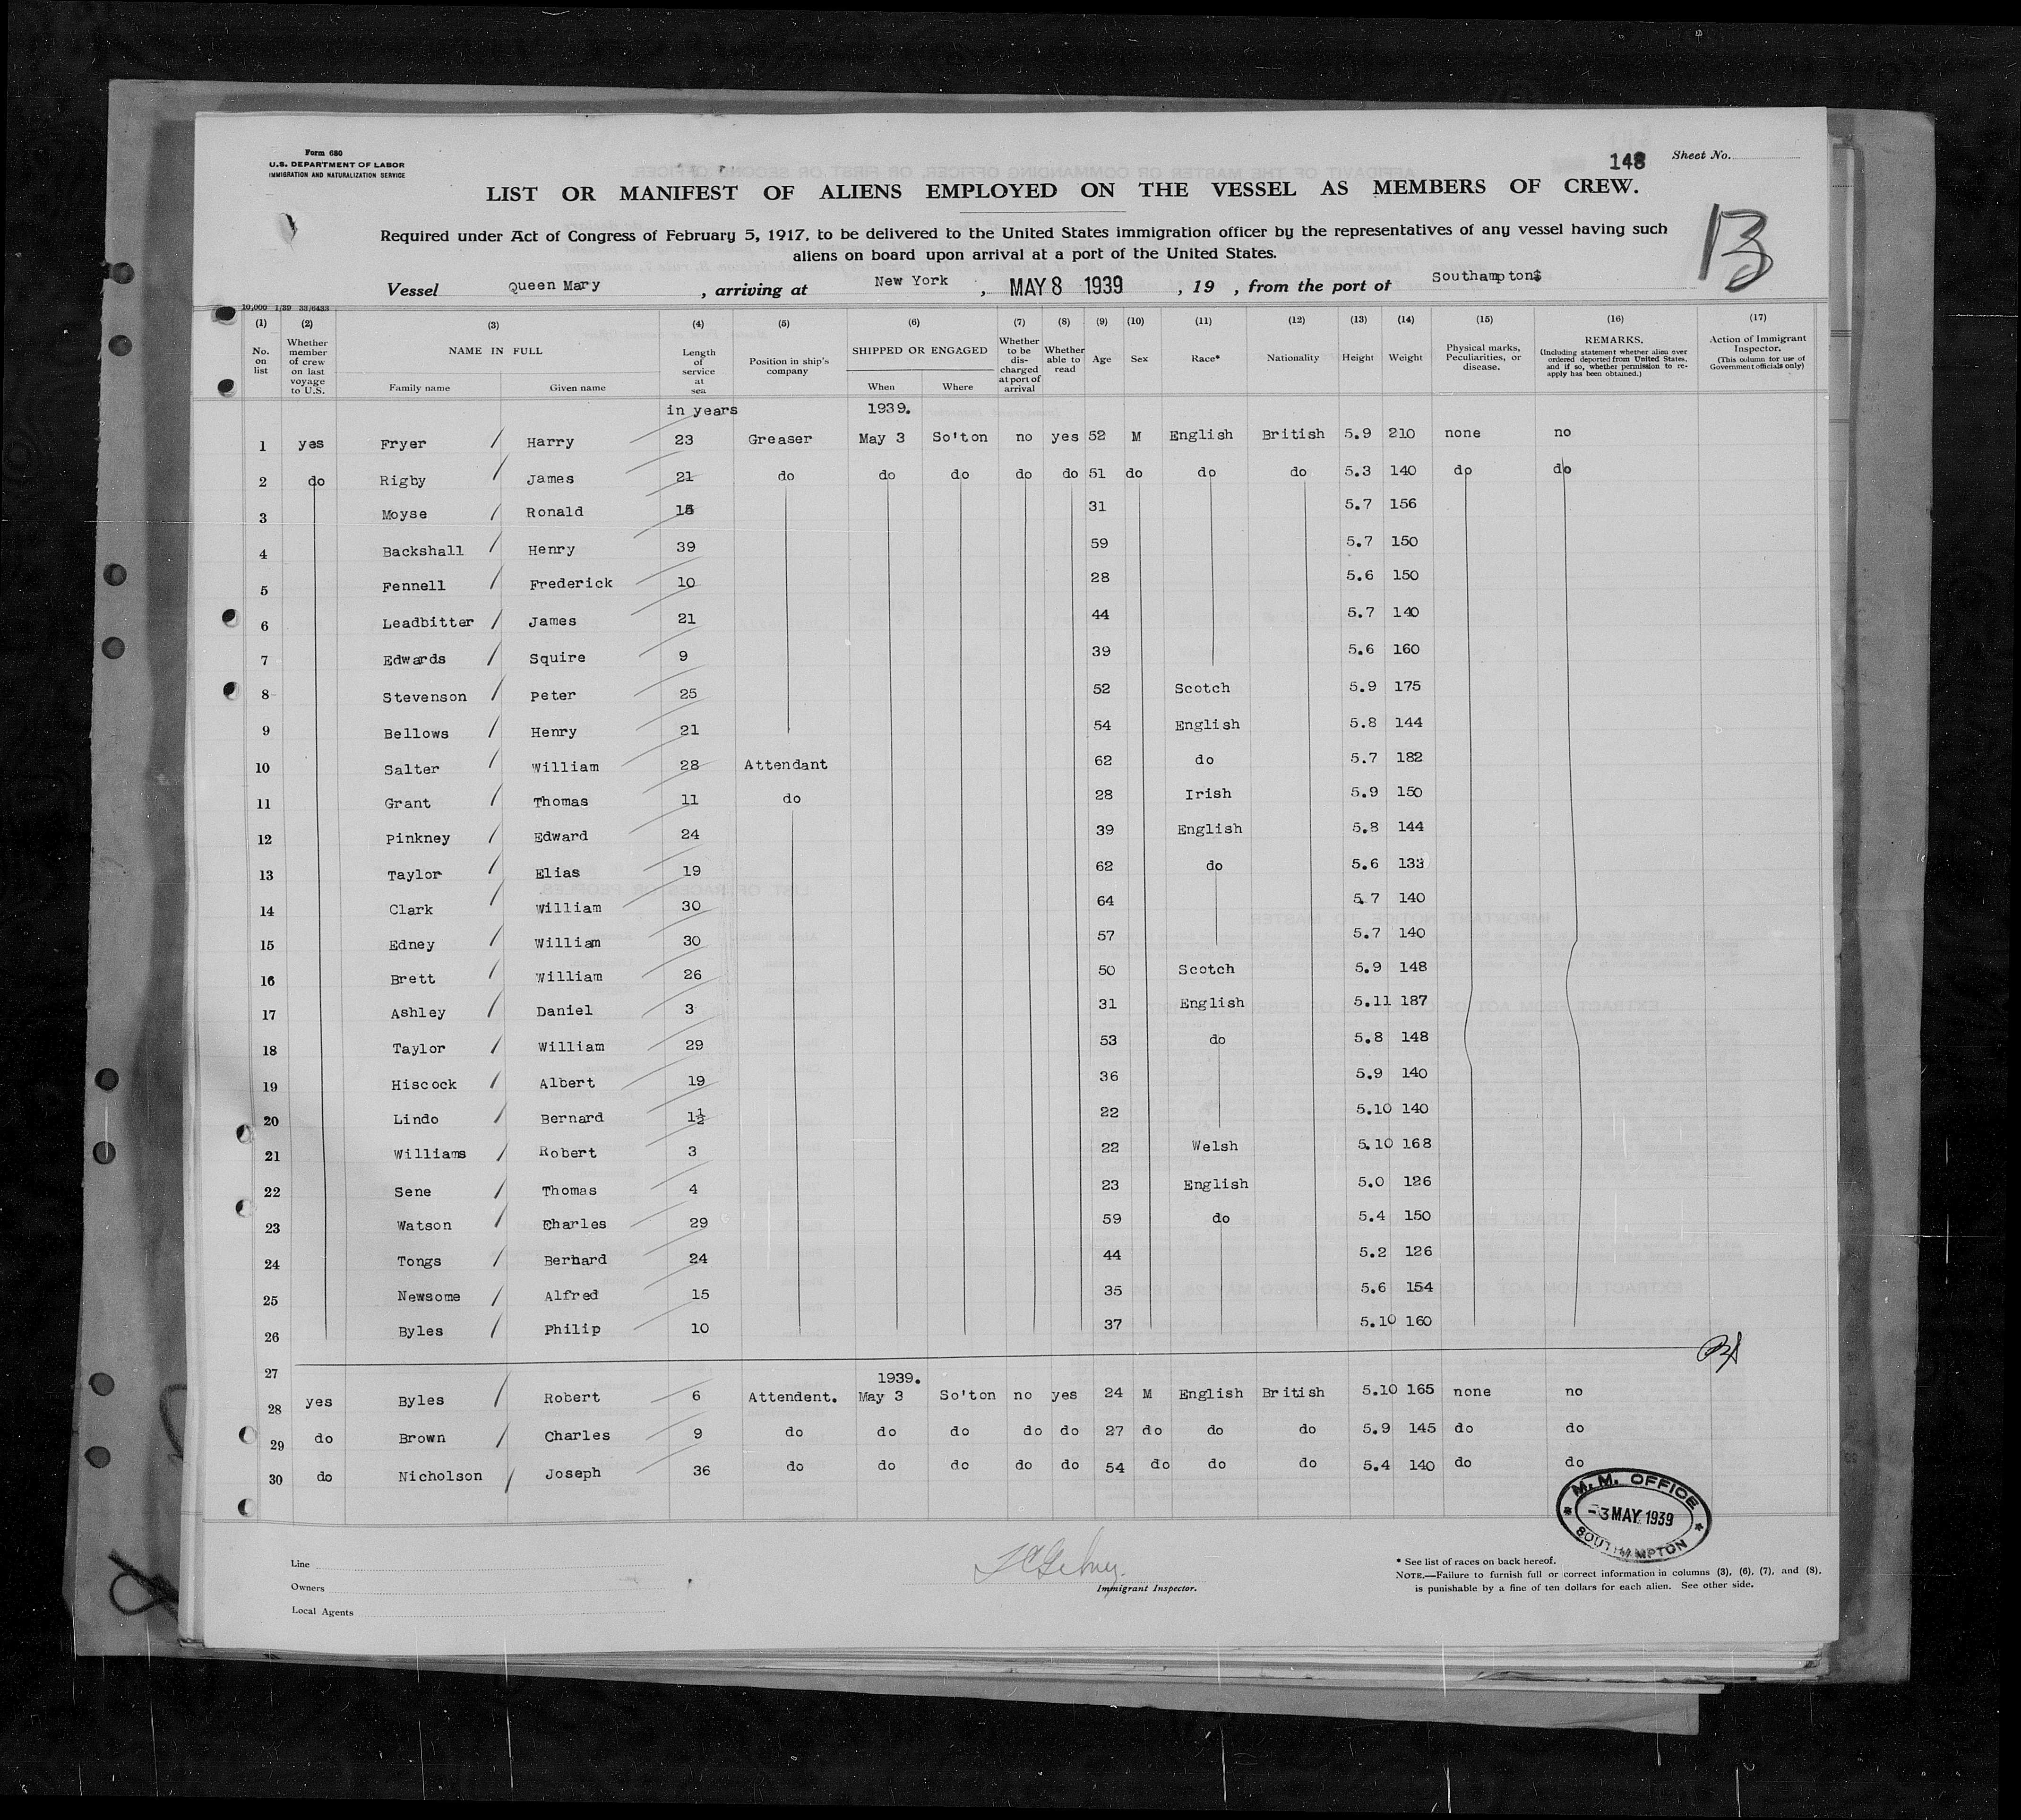 Form 680
U.S. DEPARTMENT OF LABOR
IMMIGRATION AND NATURALIZATION SERVICE
148 Sheet No.
LIST OR MANIFEST OF ALIENS EMPLOYED ON THE VESSEL AS MEMBERS OF CREW.
13
Required under Act of Congress of February 5, 1917, to be delivered to the United States immigration officer by the representatives of any vessel having such
aliens on board upon arrival at a port of the United States.
Vessel Queen Mary , arriving at New York , MAY 8 1939 , 19 , from the port of Southampton
10,000 1/39 33/6433
(1) (2) (3) (4) (5) (6) (7) (8) (9) (10) (11) (12) (13) (14) (15) (16) (17)
No. on list
Whether member of crew on last voyage to U.S.
NAME IN FULL
Family name Given name
Length of service at sea
Position in ship's company
SHIPPED OR ENGAGED
When Where
Whether to be discharged at port of arrival
Whether able to read
Age
Sex
Race*
Nationality
Height
Weight
Physical marks, Peculiarities, or disease.
REMARKS. (Including statement whether alien ever ordered deported from United States, and if so, whether permission to re-apply has been obtained.)
Action of Immigrant Inspector. (This column for use of Government officials only)
in years 1939.
1 yes Fryer Harry 23 Greaser May 3 So'ton no yes 52 M English British 5.9 210 none no
2 do Rigby James 21 do do do do do 51 do do do 5.3 140 do do
3 Moyse Ronald 15 31 5.7 156
4 Backshall Henry 39 59 5.7 150
5 Fennell Frederick 10 28 5.6 150
6 Leadbitter James 21 44 5.7 140
7 Edwards Squire 9 39 5.6 160
8 Stevenson Peter 25 52 Scotch 5.9 175
9 Bellows Henry 21 54 English 5.8 144
10 Salter William 28 Attendant 62 do 5.7 182
11 Grant Thomas 11 do 28 Irish 5.9 150
12 Pinkney Edward 24 39 English 5.8 144
13 Taylor Elias 19 62 do 5.6 133
14 Clark William 30 64 5.7 140
15 Edney William 30 57 5.7 140
16 Brett William 26 50 Scotch 5.9 148
17 Ashley Daniel 3 31 English 5.11 187
18 Taylor William 29 53 do 5.8 148
19 Hiscock Albert 19 36 5.9 140
20 Lindo Bernard 1½ 22 5.10 140
21 Williams Robert 3 22 Welsh 5.10 168
22 Sene Thomas 4 23 English 5.0 126
23 Watson Charles 29 59 do 5.4 150
24 Tongs Bernard 24 44 5.2 126
25 Newsome Alfred 15 35 5.6 154
26 Byles Philip 10 37 5.10 160
27 1939.
28 yes Byles Robert 6 Attendent. May 3 So'ton no yes 24 M English British 5.10 165 none no
29 do Brown Charles 9 do do do do do 27 do do do 5.9 145 do do
30 do Nicholson Joseph 36 do do do do do 54 do do do 5.4 140 do do
M.M. OFFICE
-3 MAY 1939
SOUTHAMPTON
Line
Owners
Local Agents
Immigrant Inspector.
* See list of races on back hereof.
NOTE.—Failure to furnish full or correct information in columns (3), (6), (7), and (8),
is punishable by a fine of ten dollars for each alien. See other side.